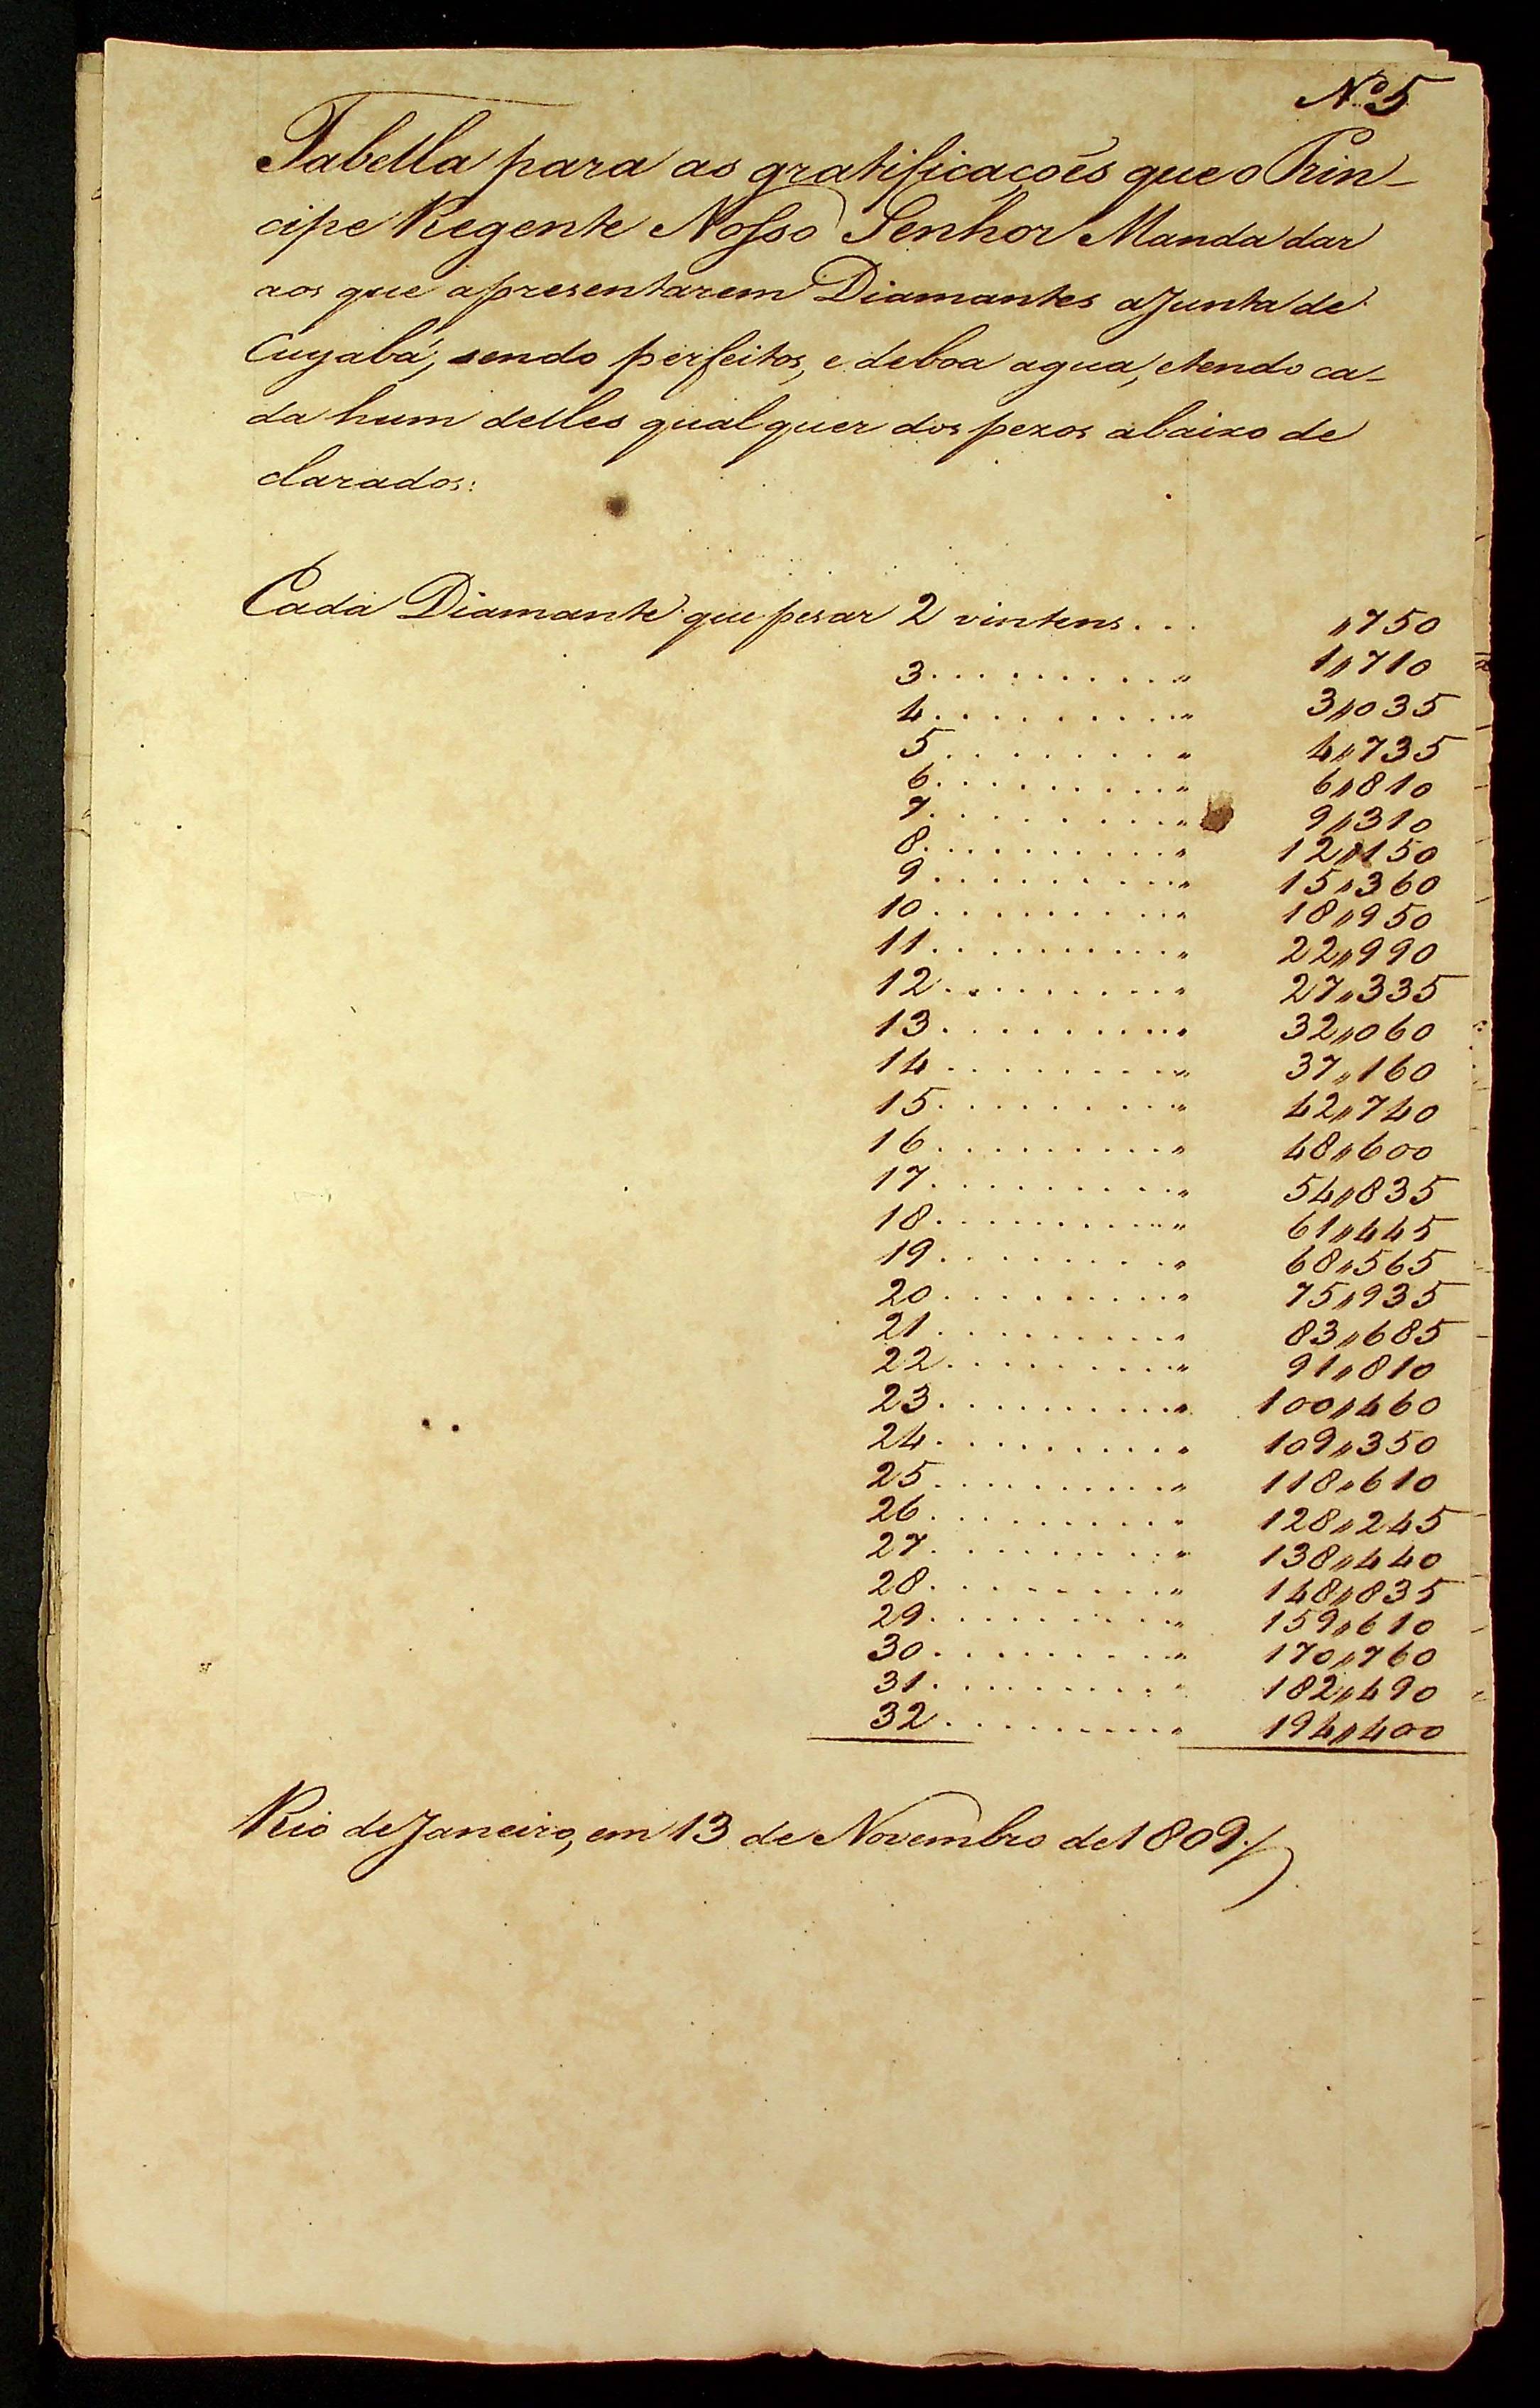 Nº 5
Tabella para as gratificaçoẽs que o Prin-
cipe Regente Nosso Senhor Manda dar
aos que apresentarem Diamantes a Junta de
Cuyabá, sendo perfeitos, e de boa agua, e tendo ca-
da hum delles qualquer dos pezos abaixo de
clarados:
Cada Diamante que pesar 2 vintens... „750
3.......... „ 1„710
4.......... „ 3„035
5.......... „ 4„735
6.......... „ 6„810
7.......... „ 9„310
8.......... „ 12„150
9.......... „ 15„360
10.......... „ 18„950
11.......... „ 22„990
12.......... „ 27„335
13.......... „ 32„060
14.......... „ 37„160
15.......... „ 42„740
16.......... „ 48„600
17.......... „ 54„835
18.......... „ 61„445
19.......... „ 68„565
20.......... „ 75„935
21.......... „ 83„685
22.......... „ 91„810
23.......... „ 100„460
24.......... „ 109„350
25.......... „ 118„610
26.......... „ 128„245
27.......... „ 138„440
28.......... „ 148„835
29.......... „ 159„610
30.......... „ 170„760
31.......... „ 182„490
32.......... „ 194„400
Rio de Janeiro, em 13 de Novembro de 1809./